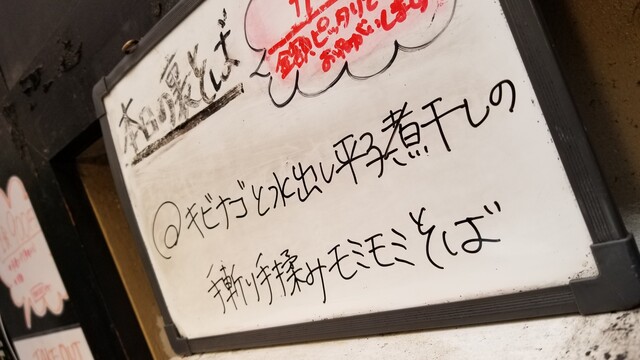 本日の裏そば
金額ピッタリで
おねがいします
@キビナゴと水出し平子煮干しの
手斬り手揉みモミモミそば